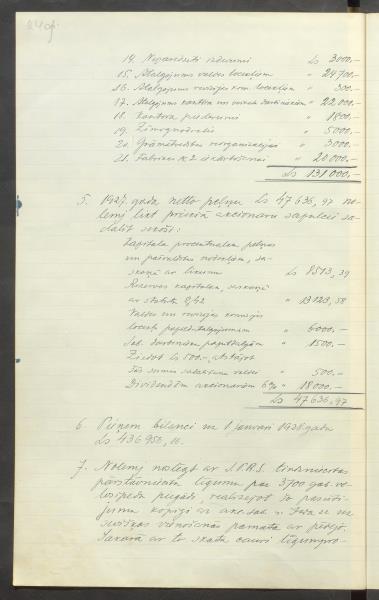 14. Neparedzēti izdevumi Ls 3000.-
15. Atalgojums valdes locekļiem " 24700.-
16. Atalgojums revīzijas kom. locekļiem " 300.-
17. Atalgojums kantora un veikala darbiniekiem " 22000.-
18. Kantora piederumi " 1800.-
19. Zīmognodoklis " 5000.-
20. Grāmatvedības reorganizācijai " 3000.-
21. Fabrikas № 2 izkārtošanai " 20000.-
Ls 131000.-
5. 1927. gada netto peļņu Ls 47636,97 no-
lemj likt priekšā akcionāru sapulcei sa-
dalīt sekoši:
Kapitāla procentuālam peļņas
un pašvaldības nodoklim, sa-
skaņā ar likumu Ls 8513,39
Rezerves kapitālam, saskaņā
ar statūtu § 42 " 13123,58
Valdes un revīzijas komisijas
locekļ. papildatalgojumam " 6000.-
Sab. darbinieku pabalstījam " 1500.-
Ziedot Ls 500.-, atstājot
šās summas sadalīšanu valdei " 500.-
Dividendēm akcionāriem 6% " 18000.-
Ls 47636,97
6. Pieņem bilanci uz 1 janvāri 1928. gada
Ls 436956,16.
7. Nolemj noslēgt ar S.P.R.S. tirdzniecības
pārstāvniecību līgumu par 3700 gab. ve-
losipēdu piegādi, realizējot šo pasūtī-
jumu kopīgi ar akc. sab.
savstarpējas vienošanās pamata ar pēdējo.
Sakarā ar to skata cauri līgumpro-